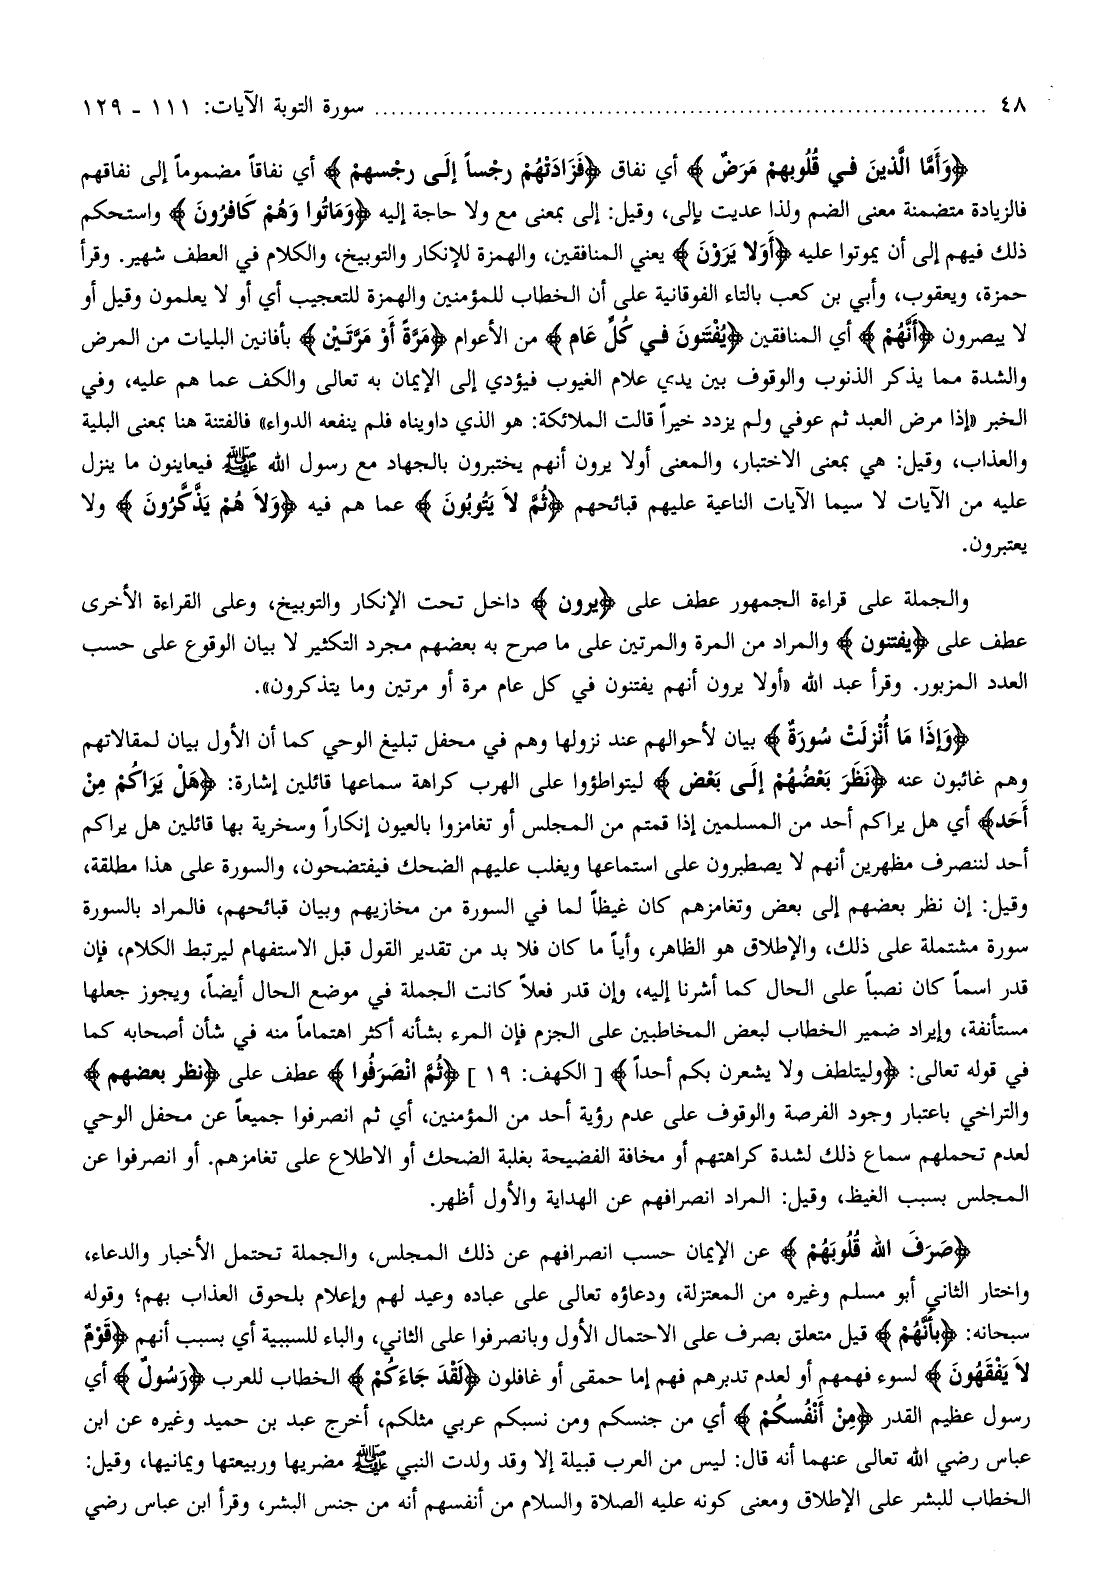 ٤٨ ........................................................................ سورة التوبة الآيات: ١١١ - ١٢٩
﴿وَأَمَّا الَّذِينَ فِي قُلُوبِهِمْ مَرَضٌ﴾ أي نفاق ﴿فَزَادَتْهُمْ رِجْساً إِلَى رِجْسِهِمْ﴾ أي نفاقاً مضموماً إلى نفاقهم
فالزيادة متضمنة معنى الضم ولذا عديت بإلى، وقيل: إلى بمعنى مع ولا حاجة إليه ﴿وَمَاتُوا وَهُمْ كَافِرُونَ﴾ واستحكم
ذلك فيهم إلى أن يموتوا عليه ﴿أَوَلا يَرَوْنَ﴾ يعني المنافقين، والهمزة للإنكار والتوبيخ، والكلام في العطف شهير. وقرأ
حمزة، ويعقوب، وأبي بن كعب بالتاء الفوقانية على أن الخطاب للمؤمنين والهمزة للتعجيب أي أو لا يعلمون وقيل أو
لا يبصرون ﴿أَنَّهُمْ﴾ أي المنافقين ﴿يُفْتَنُونَ فِي كُلِّ عَامٍ﴾ من الأعوام ﴿مَرَّةً أَوْ مَرَّتَيْنِ﴾ بأفانين البليات من المرض
والشدة مما يذكر الذنوب والوقوف بين يدي علام الغيوب فيؤدي إلى الإيمان به تعالى والكف عما هم عليه، وفي
الخبر «إذا مرض العبد ثم عوفي ولم يزدد خيراً قالت الملائكة: هو الذي داويناه فلم ينفعه الدواء» فالفتنة هنا بمعنى البلية
والعذاب، وقيل: هي بمعنى الاختبار، والمعنى أولا يرون أنهم يختبرون بالجهاد مع رسول الله ﷺ فيعاينون ما ينزل
عليه من الآيات لا سيما الآيات الناعية عليهم قبائحهم ﴿ثُمَّ لاَ يَتُوبُونَ﴾ عما هم فيه ﴿وَلاَ هُمْ يَذَّكَّرُونَ﴾ ولا
يعتبرون.
والجملة على قراءة الجمهور عطف على ﴿يرون﴾ داخل تحت الإنكار والتوبيخ، وعلى القراءة الأخرى
عطف على ﴿يفتنون﴾ والمراد من المرة والمرتين على ما صرح به بعضهم مجرد التكثير لا بيان الوقوع على حسب
العدد المزبور. وقرأ عبد الله «أولا يرون أنهم يفتنون في كل عام مرة أو مرتين وما يتذكرون».
﴿وَإِذَا مَا أُنْزِلَتْ سُورَةٌ﴾ بيان لأحوالهم عند نزولها وهم في محفل تبليغ الوحي كما أن الأول بيان لمقالاتهم
وهم غائبون عنه ﴿نَظَرَ بَعْضُهُمْ إِلَى بَعْضٍ﴾ ليتواطؤوا على الهرب كراهة سماعها قائلين إشارة: ﴿هَلْ يَرَاكُمْ مِنْ
أَحَدٍ﴾ أي هل يراكم أحد من المسلمين إذا قمتم من المجلس أو تغامزوا بالعيون إنكاراً وسخرية بها قائلين هل يراكم
أحد لننصرف مظهرين أنهم لا يصطبرون على استماعها ويغلب عليهم الضحك فيفتضحون، والسورة على هذا مطلقة،
وقيل: إن نظر بعضهم إلى بعض وتغامزهم كان غيظاً لما في السورة من مخازيهم وبيان قبائحهم، فالمراد بالسورة
سورة مشتملة على ذلك، والإطلاق هو الظاهر، وأياً ما كان فلا بد من تقدير القول قبل الاستفهام ليرتبط الكلام، فإن
قدر اسماً كان نصباً على الحال كما أشرنا إليه، وإن قدر فعلاً كانت الجملة في موضع الحال أيضاً، ويجوز جعلها
مستأنفة، وإيراد ضمير الخطاب لبعض المخاطبين على الجزم فإن المرء بشأنه أكثر اهتماماً منه في شأن أصحابه كما
في قوله تعالى: ﴿وليتلطف ولا يشعرن بكم أحداً﴾ [الكهف: ١٩] ﴿ثُمَّ انْصَرَفُوا﴾ عطف على ﴿نظر بعضهم﴾
والتراخي باعتبار وجود الفرصة والوقوف على عدم رؤية أحد من المؤمنين، أي ثم انصرفوا جميعاً عن محفل الوحي
لعدم تحملهم سماع ذلك لشدة كراهتهم أو مخافة الفضيحة بغلبة الضحك أو الاطلاع على تغامزهم. أو انصرفوا عن
المجلس بسبب الغيظ، وقيل: المراد انصرافهم عن الهداية والأول أظهر.
﴿صَرَفَ الله قُلُوبَهُمْ﴾ عن الإيمان حسب انصرافهم عن ذلك المجلس، والجملة تحتمل الأخبار والدعاء،
واختار الثاني أبو مسلم وغيره من المعتزلة، ودعاؤه تعالى على عباده وعيد لهم وإعلام بلحوق العذاب بهم؛ وقوله
سبحانه: ﴿بِأَنَّهُمْ﴾ قيل متعلق بصرف على الاحتمال الأول وبانصرفوا على الثاني، والباء للسببية أي بسبب أنهم ﴿قَوْمٌ
لاَ يَفْقَهُونَ﴾ لسوء فهمهم أو لعدم تدبرهم فهم إما حمقى أو غافلون ﴿لَقَدَ جَاءَكُمْ﴾ الخطاب للعرب ﴿رَسُولٌ﴾ أي
رسول عظيم القدر ﴿مِنْ أَنْفُسِكُمْ﴾ أي من جنسكم ومن نسبكم عربي مثلكم، أخرج عبد بن حميد وغيره عن ابن
عباس رضي الله تعالى عنهما أنه قال: ليس من العرب قبيلة إلا وقد ولدت النبي ﷺ مضريها وربيعتها ويمانيها، وقيل:
الخطاب للبشر على الإطلاق ومعنى كونه عليه الصلاة والسلام من أنفسهم أنه من جنس البشر، وقرأ ابن عباس رضي